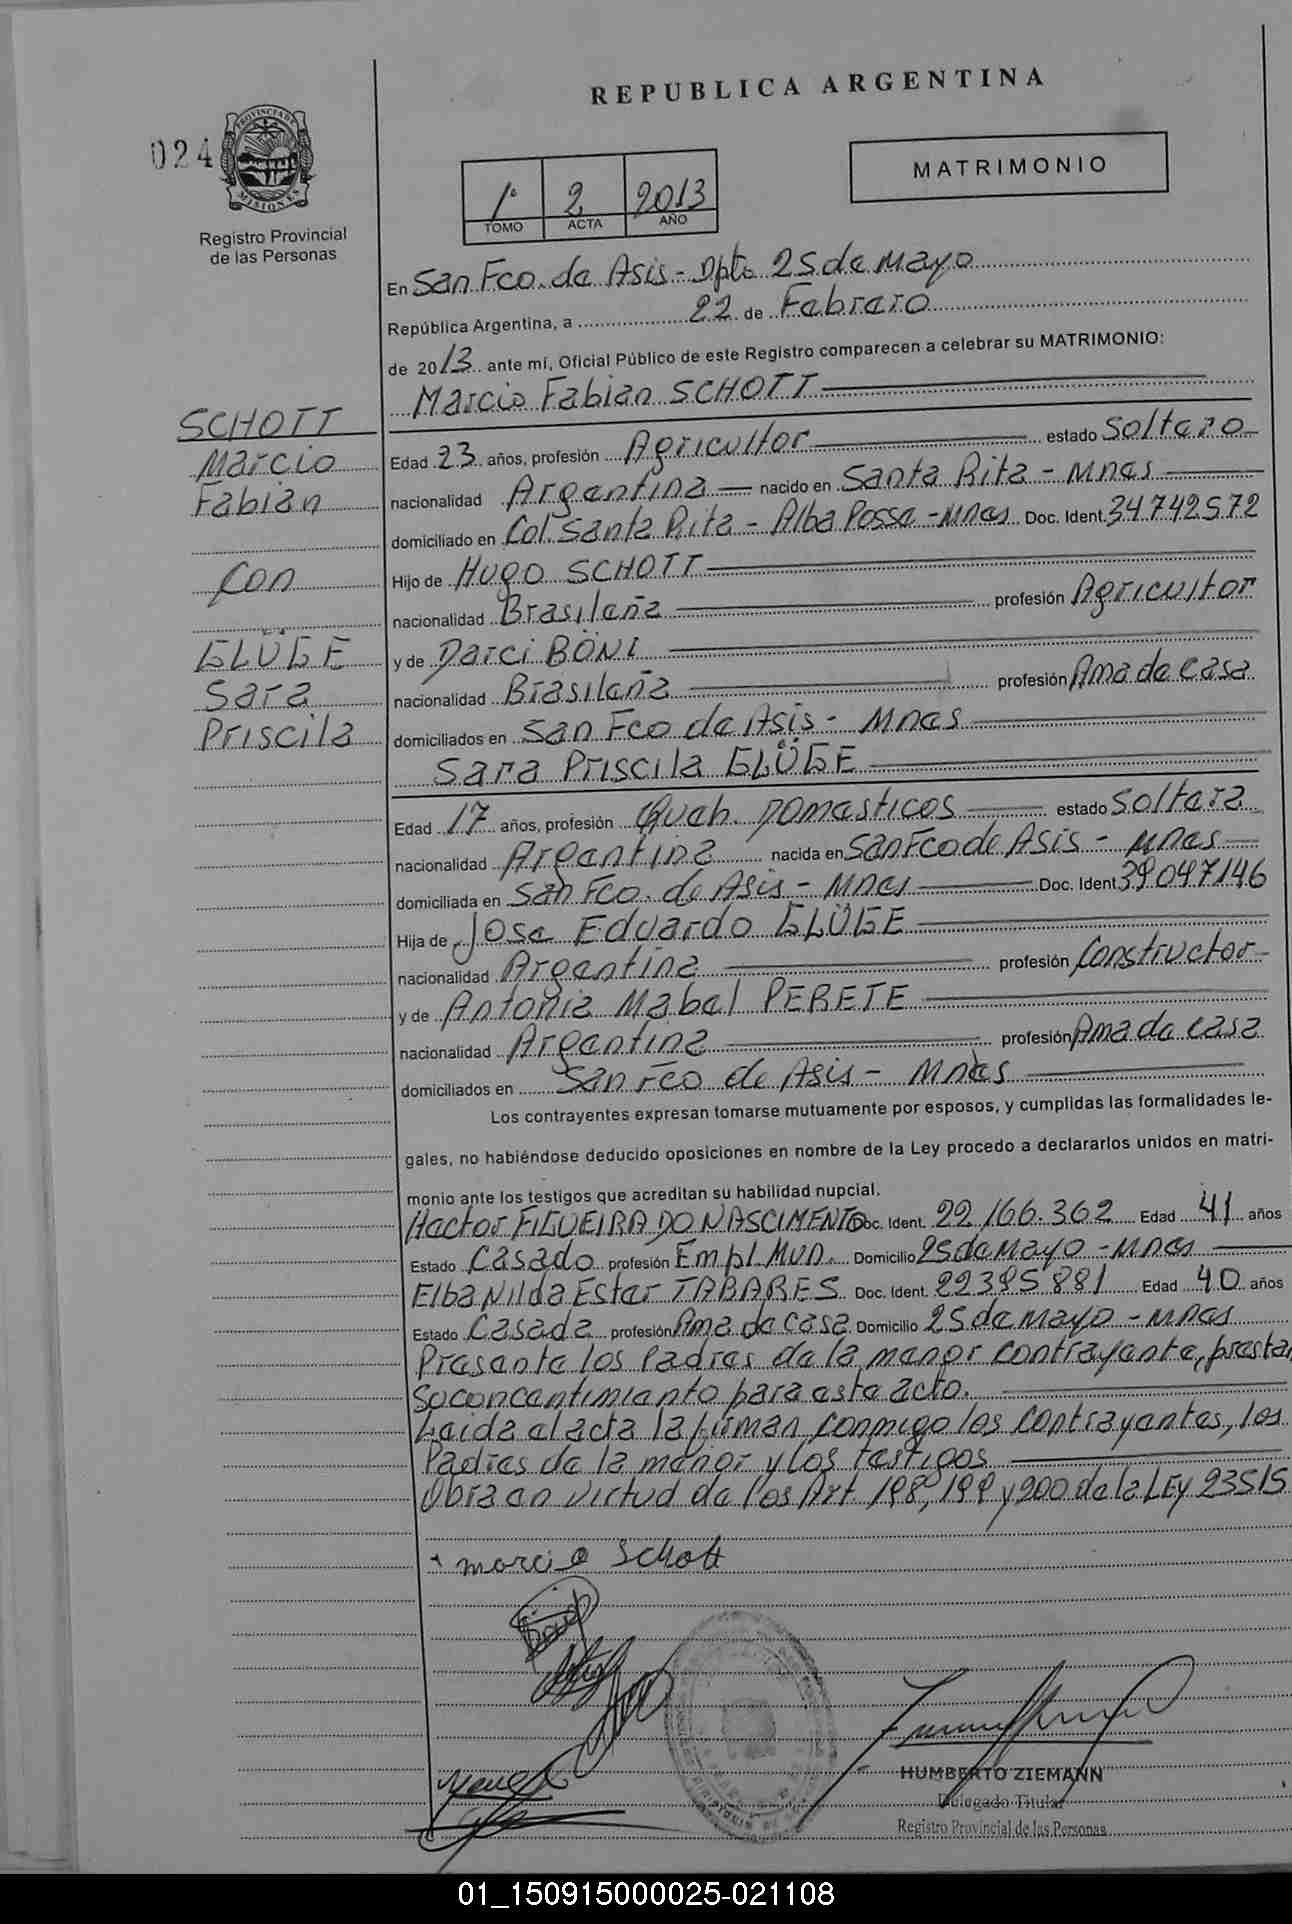 REPUBLICA ARGENTINA
024
PROVINCIA DE
MISIONES
Registro Provincial
de las Personas
1° 2 2013
TOMO ACTA AÑO
MATRIMONIO
En San Fco. de Asis - Dpto 25 de Mayo
República Argentina, a 22 de Febrero
de 2013 ante mí, Oficial Público de este Registro comparecen a celebrar su MATRIMONIO:
Marcio Fabian SCHOTT
SCHOTT
Marcio
Fabian
con
GLÜGE
Sara
Priscila
Edad 23 años, profesión Agricultor estado Soltero
nacionalidad Argentina nacido en Santa Rita - Mnes
domiciliado en Col. Santa Rita - Alba Posse - Mnes Doc. Ident. 34742572
Hijo de Hugo SCHOTT
nacionalidad Brasileña profesión Agricultor
y de Darci BÖNI
nacionalidad Brasileña profesión Ama de casa
domiciliados en San Fco de Asis - Mnes
Sara Priscila GLÜGE
Edad 17 años, profesión Queh. Domesticos estado Soltera
nacionalidad Argentina nacida en San Fco de Asis - Mnes
domiciliada en San Fco. de Asis - Mnes Doc. Ident 39047146
Hija de Jose Eduardo GLÜGE
nacionalidad Argentina profesión Constructor
y de Antonia Mabel PERETE
nacionalidad Argentina profesión Ama de casa
domiciliados en San Fco de Asis - Mnes
Los contrayentes expresan tomarse mutuamente por esposos, y cumplidas las formalidades le-
gales, no habiéndose deducido oposiciones en nombre de la Ley procedo a declararlos unidos en matri-
monio ante los testigos que acreditan su habilidad nupcial.
Hector FIGUEIRA DO NASCIMENTO Doc. Ident. 22.166.362 Edad 41 años
Estado Casado profesión Empl. Mun. Domicilio 25 de Mayo - Mnes
Elba Nilda Ester TABARES Doc. Ident. 22395881 Edad 40 años
Estado Casada profesión Ama de casa Domicilio 25 de Mayo - Mnes
Presente los Padres de la menor contrayente, prestan
Su concentimiento para este acto.
Leida el acta la firman conmigo los contrayentes, los
Padres de la menor y los testigos
Obra en virtud de los Art 198, 199 y 200 de la Ley 23515
marcio Schott
HUMBERTO ZIEMANN
Delegado Titular
Registro Provincial de las Personas
01_150915000025-021108